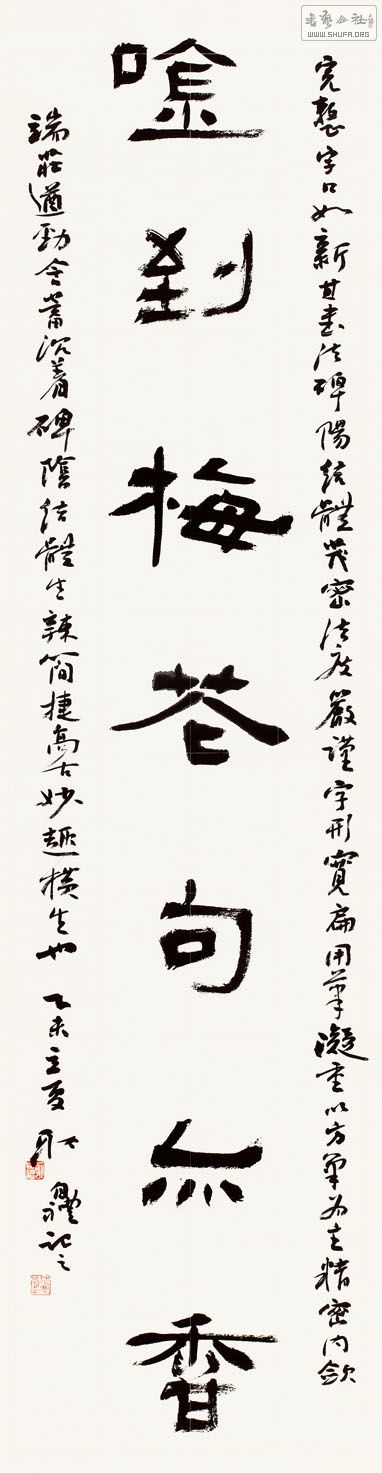 書藝公社
WWW.SHUFA.ORG
完整字口如新其書法碑陽結體茂密法度嚴謹字形寬扁用筆凝重以方筆為主精密內斂
唫到梅花句亦香
端莊遒勁含蓄沉着碑陰結體生辣簡捷高古妙趣橫生也 乙未立夏 耿 記之